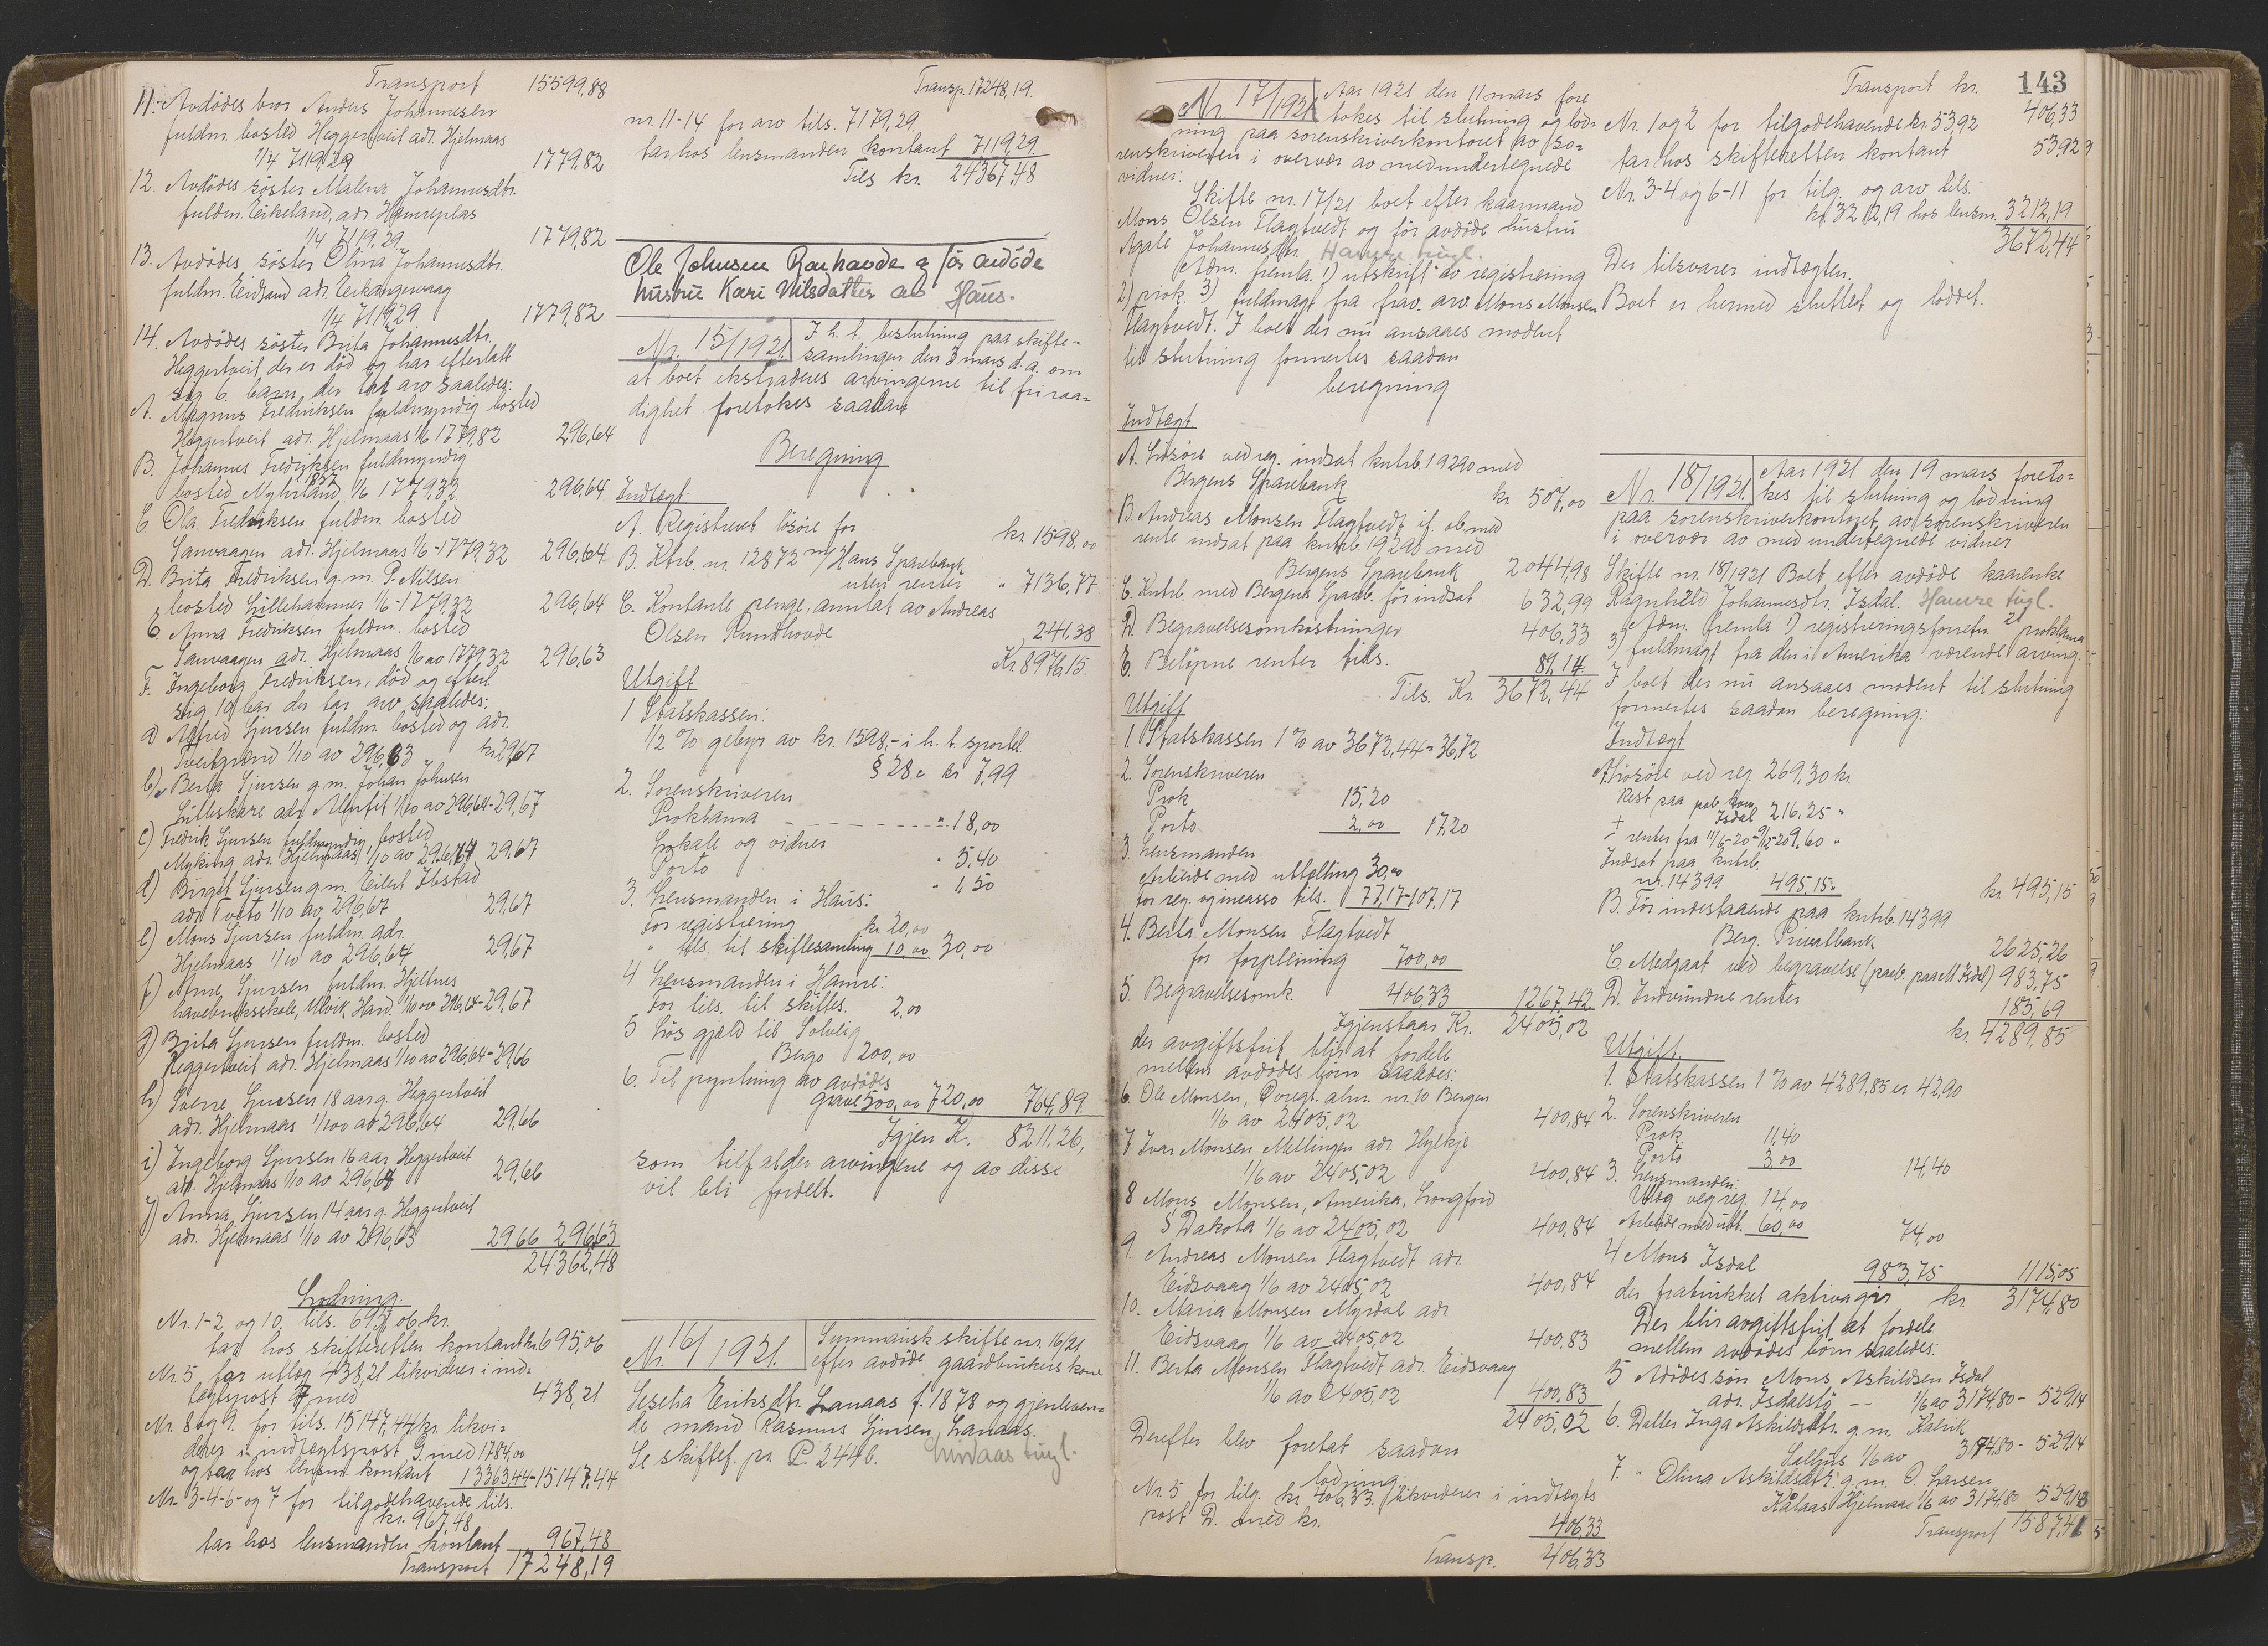 Transport 15599,88
11. Avdödes bror Anders Johannesen
fuldm. bosted Heggertveit adr. Hjelmaas
1/4 7119,29 1779,82
12. Avdödes söster Malena Johannesdtr.
fuldm. Eikeland, adr. Hamreplas
1/4 7119,29 1779,82
13. Avdödes söster Olina Johannesdtr.
fuldm. Eidsand adr. Eikangervaag
1/4 7119,29 1779,82
14. Avdödes söster Brita Johannesdtr.
Heggertveit, der er död og har efterlatt
sig 6. barn der tar arv saaledes:
A. Magnus Fredriksen fuldmyndig bosted
Heggertveit adr. Hjelmaas 1/6 1779,82 296,64
B. Johannes Fredriksen fuldmyndig
bosted Nyhrland, 1/6 1779,32 296,64
C. Ola Fredriksen fuldm. bosted
Sanvaagen adr. Hjelmaas 1/6-1779,32 296,64
D. Brita Fredriksen g.m. P. Nilsen
bosted Lillehammer 1/6-1779,32 296,64
E. Anna Fredriksen fuldm. bosted
Sanvaagen adr. Hjelmaas 1/6 av 1779,32 296,63
F. Ingeborg Fredriksen, död og efterl.
sig 10 bar der tar arv saaledes:
a) Alfred Sjursen fuldm. bosted og adr.
Tveitgrend 1/10 av 296,63 kr. 29,67
b) Berta Sjursen g.m. Johan Johnsen
Lilleskare adr. Alenfit 1/10 av 296,64 - 29,67
c) Fredrik Sjursen fuldmyndig, bosted
Myking adr. Hjelmaas 1/10 av 296,64 29,67
d) Birgit Sjursen g.m. Eilert Ibstad
adr. Tveto 1/10 av 296,67 29,67
e) Mons Sjursen fuldm. adr.
Hjelmaas 1/10 av 296,64 29,67
f) Arne Sjursen fuldm. Hjeltnes
havebruksskole, Ulvik, Hard. 1/10 av 296,64-29,67
g) Brita Sjursen fuldm. bosted
Heggertveit adr. Hjelmaas 1/10 av 296,64-29,66
h) Sverre Sjursen 18 aar g. Heggertveit
adr. Hjelmaas 1/10 av 296,64 29,66
i) Ingeborg Sjursen 16 aar Heggertveit
adr. Hjelmaas 1/10 av 296,64 29,66
j) Anna Sjursen 14 aar g. Heggertveit
adr. Hjelmaas 1/10 av 296,63 29,66 296,63
24362,48
Lodning.
Nr. 1-2 og 10. tils. 695,06 kr.
tar hos skifteretten kontant kr. 695,06
Nr. 5 for utlæg 438,21 likvideres i ind-
tægtspost F med 438,21
Nr. 8 og 9. for tils. 15147,44 kr. likvi-
deres i indtægtspost G med 1784,00
og tar hos lensm. kontant 13363,44-15147,44
Nr. 3-4-6- og 7 for tilgodehavende tils.
kr. 967,48
tar hos lensmanden kontant 967,48
Transport 17248,19
Transp. 17248,19.
nr. 11-14 for arv tils. 7179,29
tar hos lensmanden kontant 7119,29
Tils kr. 24367,48
Ole Johnsen Ronhovde og för avdöde
hustru Kari Nilsdatter av Haus.
Nr. 15/1921. I h. t. beslutning paa skifte-
samlingen den 3 mars d.a. om
at boet ekstraderes arvingerne til fri raa-
dighet foretokes saadan
Beregning
Indtægt:
A. Registreret lösöre for kr 1598,00
B. Ktrb. nr. 12872 m/ Haus Sparebank
uten renter " 7136,77
C. Kontante penge, anmlat av Andreas
Olsen Rundhovde 241,38
Kr 8976,15
Utgift
1 Statskassen:
1/2 % gebyr av kr. 1598,- i h. t. sportel.
§ 28: kr 7,99
2. Sorenskriveren
Proklama " 18,00
Lokale og vidner " 5,40
Porto " 1,50
3. Lensmanden i Haus:
For registrering kr 20,00
" tils. til skiftesamling 10,00 30,00
4 Lensmanden i Hamre:
For tils. til skiftes. 2,00
5 Lös gjæld til Solveig
Bergo 200,00
6. Til pyntning av avdödes
grave 500,00 720,00 764,89
Igjen K. 8211.26,
som tilfalder arvingerne og av disse
vil bli fordelt.
Nr. 16/1921. Summarisk skifte nr. 16/21
efter avdöde gaardbrukers kone
Seselia Eriksdtr. Lanaas f. 1878 og gjenleven-
de mand Rasmus Sjursen, Lanaas.
Se skiftef. pr. P. 244b. Lindaas tingl.
143
Nr. 17/1921. Aar 1921 den 11 mars fore
tokes til slutning og lod-
ning paa sorenskriverkontoret av so-
renskriveren i overvær av medundertegnede
vidner:
Skifte nr. 17/21 boet efter kaarmand
Mons Olsen Flagtvedt og för avdöde hustru
Agate Johannesdtr. Hamre tingl.
Adm. fremla. 1) utskrift av registrering
2) prok. 3) fuldmagt fra frav. arv. Mons Monsen
Flagtvedt. I boet der nu ansaaes modent
til slutning formertes saadan
beregning
Indtægt
A. Lösöre ved reg. indsat kntrb. 19290 med
Bergens Sparebank kr 507,00
B. Andreas Monsen Flagtvedt if. ob. med
rente indsat paa kntrb. 19290 med
Bergens Sparebank 2044,98
C. Kntrb. med Bergens Spareb. för indsat 632,99
D. Begravelsesomkostninger 406,33
E. Belöpne renter tils. 81,14
Tils. Kr. 3672,44
Utgift
1. Statskassen 1 % av 3672,44 = 36,72
2. Sorenskriveren
Prok 15,20
Porto 2,00 17,20
3. Lensmanden
Arbeide med utlodning 30,00
for reg. og incasso tils. 77,17-107,17
4. Berta Monsen Flagtvedt
for forpleining 700,00
5. Begravelsesomk. 406,33 1267,42
Igjenstaar Kr. 2405,02
der avgiftsfrit blir at fordele
mellem avdödes börn saaledes:
6. Ole Monsen, Övregt. alm. nr. 10 Bergen
1/6 av 2405,02 400,84
7 Ivar Monsen Mellingen adr. Hylkje
1/6 av 2405,02 400,84
8 Mons Monsen, Amerika, Longford
S Dakota 1/6 av 2405,02 400,84
9. Andreas Monsen Flagtvedt adr.
Eidsvaag 1/6 av 2405,02 400,84
10. Maria Monsen Myrdal adr
Eidsvaag 1/6 av 2405,02 400,83
11. Berta Monsen Flagtvedt adr. Eidsvaag
1/6 av 2405,02 400,83
2405,02
Derefter blev foretat saadan
lodning:
Nr. 5 for tilg. kr 406,33. likvideres i indtægts
post D. med kr. 406,33
Transp. 406,33
Transport kr. 406,33
Nr. 1 og 2 for tilgodehavende kr. 53,92
tar hos skifteretten kontant 53,92
Nr. 3-4 og 6-11 for tilg. og arv tils.
kr. 3212,19 hos lensm. 3212,19
3672,44
Der tilsvarer indtægten.
Boet er hermed sluttet og loddet.
Nr. 18/1921. Aar 1921 den 19 mars foreto-
kes til slutning og lodning
paa sorenskriverkontoret av sorenskriveren
i overvær av medundertegnede vidner
Skifte nr. 18/1921 Boet efter avdöde kaarenke
Ragnhild Johannesdtr. Isdal. Hamre tingl.
Adm. fremla 1) registreringsforretn. 2) proklama
3) fuldmagt fra den i Amerika værende arving.
I boet der nu ansaaes modent til slutning
formertes saadan beregning:
Indtægt
A. Lösöre ved reg. 269,30 kr
Rest paa
Isdal 216,25 "
+ renter fra 11/6-20-9/12-20 9,60 "
Indsat paa kntrb.
nr. 14399 495,15. kr 495,15
B. För indestaaende paa kntrb. 14399
Berg. Privatbank 2625,26
C. Medgaat ved begravelse (paab. paa M. Isdal) 983,75
D. Indvundne renter 185,69
kr. 4289,85
Utgift
1. Statskassen 1 % av 4289,85 er 42,90
2. Sorenskriveren
Prok. 11,40
Porto 3,00 14,40
3. Lensmanden:
Utlæg ved reg. 14,00
Arbeide med utl. 60,00 74,00
4 Mons Isdal 983,75 1115,05
der fratrukket aktiva gir kr. 3174,80
Der blir avgiftsfrit at fordele
mellem avdödes börn saaledes:
5 Avdödes sön Mons Askildsen Isdal
adr. Isdalstö -- 1/6 av 3174,80 - 529,14
6. Datter Inga Askildsdtr. g.m. Kalrik
1/6 av 3174,80 - 529,14
7. " Olina Askildsdtr. g.m. O. Larsen
Kålaas Hjelmaas 1/6 av 3174,80 529,13
Transport 1587,41